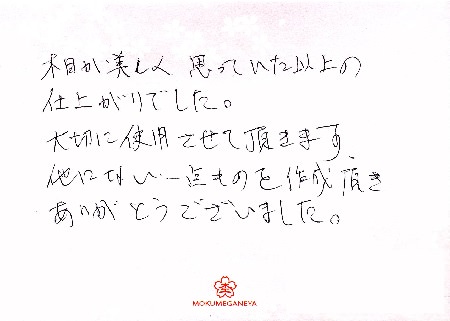 木目が美しく 思っていた以上の
仕上がりでした。
大切に使用させて頂きます、
他にない一点ものを作成頂き
ありがとうございました。
MOKUMEGANEYA